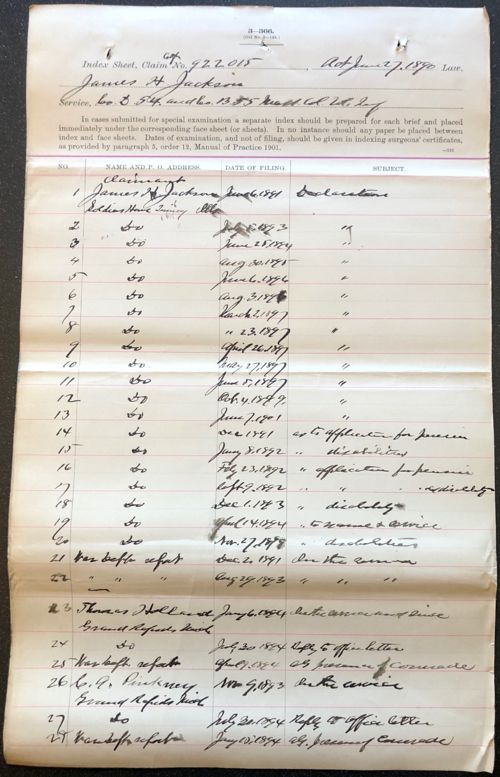 3—366.
Index Sheet, Claim Ctf. No. 922015 Act June 27, 1890 Law.
James H Jackson
Service, Co. D 54, and Co. 13 & 55 Mass Col Vt. Inf
In cases submitted for special examination a separate index should be prepared for each brief and placed
immediately under the corresponding face sheet (or sheets). In no instance should any paper be placed between
index and face sheets. Dates of examination, and not of filing, should be given in indexing surgeons' certificates,
as provided by paragraph 5, order 12, Manual of Practice 1901.
NO. NAME AND P. O. ADDRESS. DATE OF FILING. SUBJECT.
Claimant
1 James H Jackson June 6, 1891 Declaration
Soldiers Home Quincy Ills
2 Do 1893 "
3 Do June 28, 1894 "
4 Do Aug. 30, 1895 "
5 Do June 6, 1896 "
6 Do Aug. 3, "
7 Do March 2, 1897 "
8 Do " 23, 1897 "
9 Do April 26, 1897 "
10 Do May 27, 1897 "
11 Do June 5, 1897 "
12 Do Oct. 4, 1899, "
13 Do June 7, 1901 "
14 Do Dec 1891 as to application for pension
15 Do Jany 8, 1892 " disabilities
16 Do Feby 23, 1892 " application for pension
17 Do Sept 9, 1892 " " " & disability
18 Do Dec 1, 1893 " disability
19 Do April 14, 1894 " to name & service
20 Do Nov. 27, " disabilities
21 War Dept report Dec 2, 1891 On the service
22 " " " Aug 29, 1893 " " "
23 Thomas Holland Jany 6, 1894 On the service and since
Grand Rapids Mich
24 Do July 30 1894 Reply to office letter
25 War Dept. report 1894 as presence of comrade
26 C. A. Pinkney Nov 9, 1893 On the service
Grand Rapids Mich
27 Do July 30, 1894 Reply to office letter
28 War Dept report Jany 15, 1894 as. presence of comrade